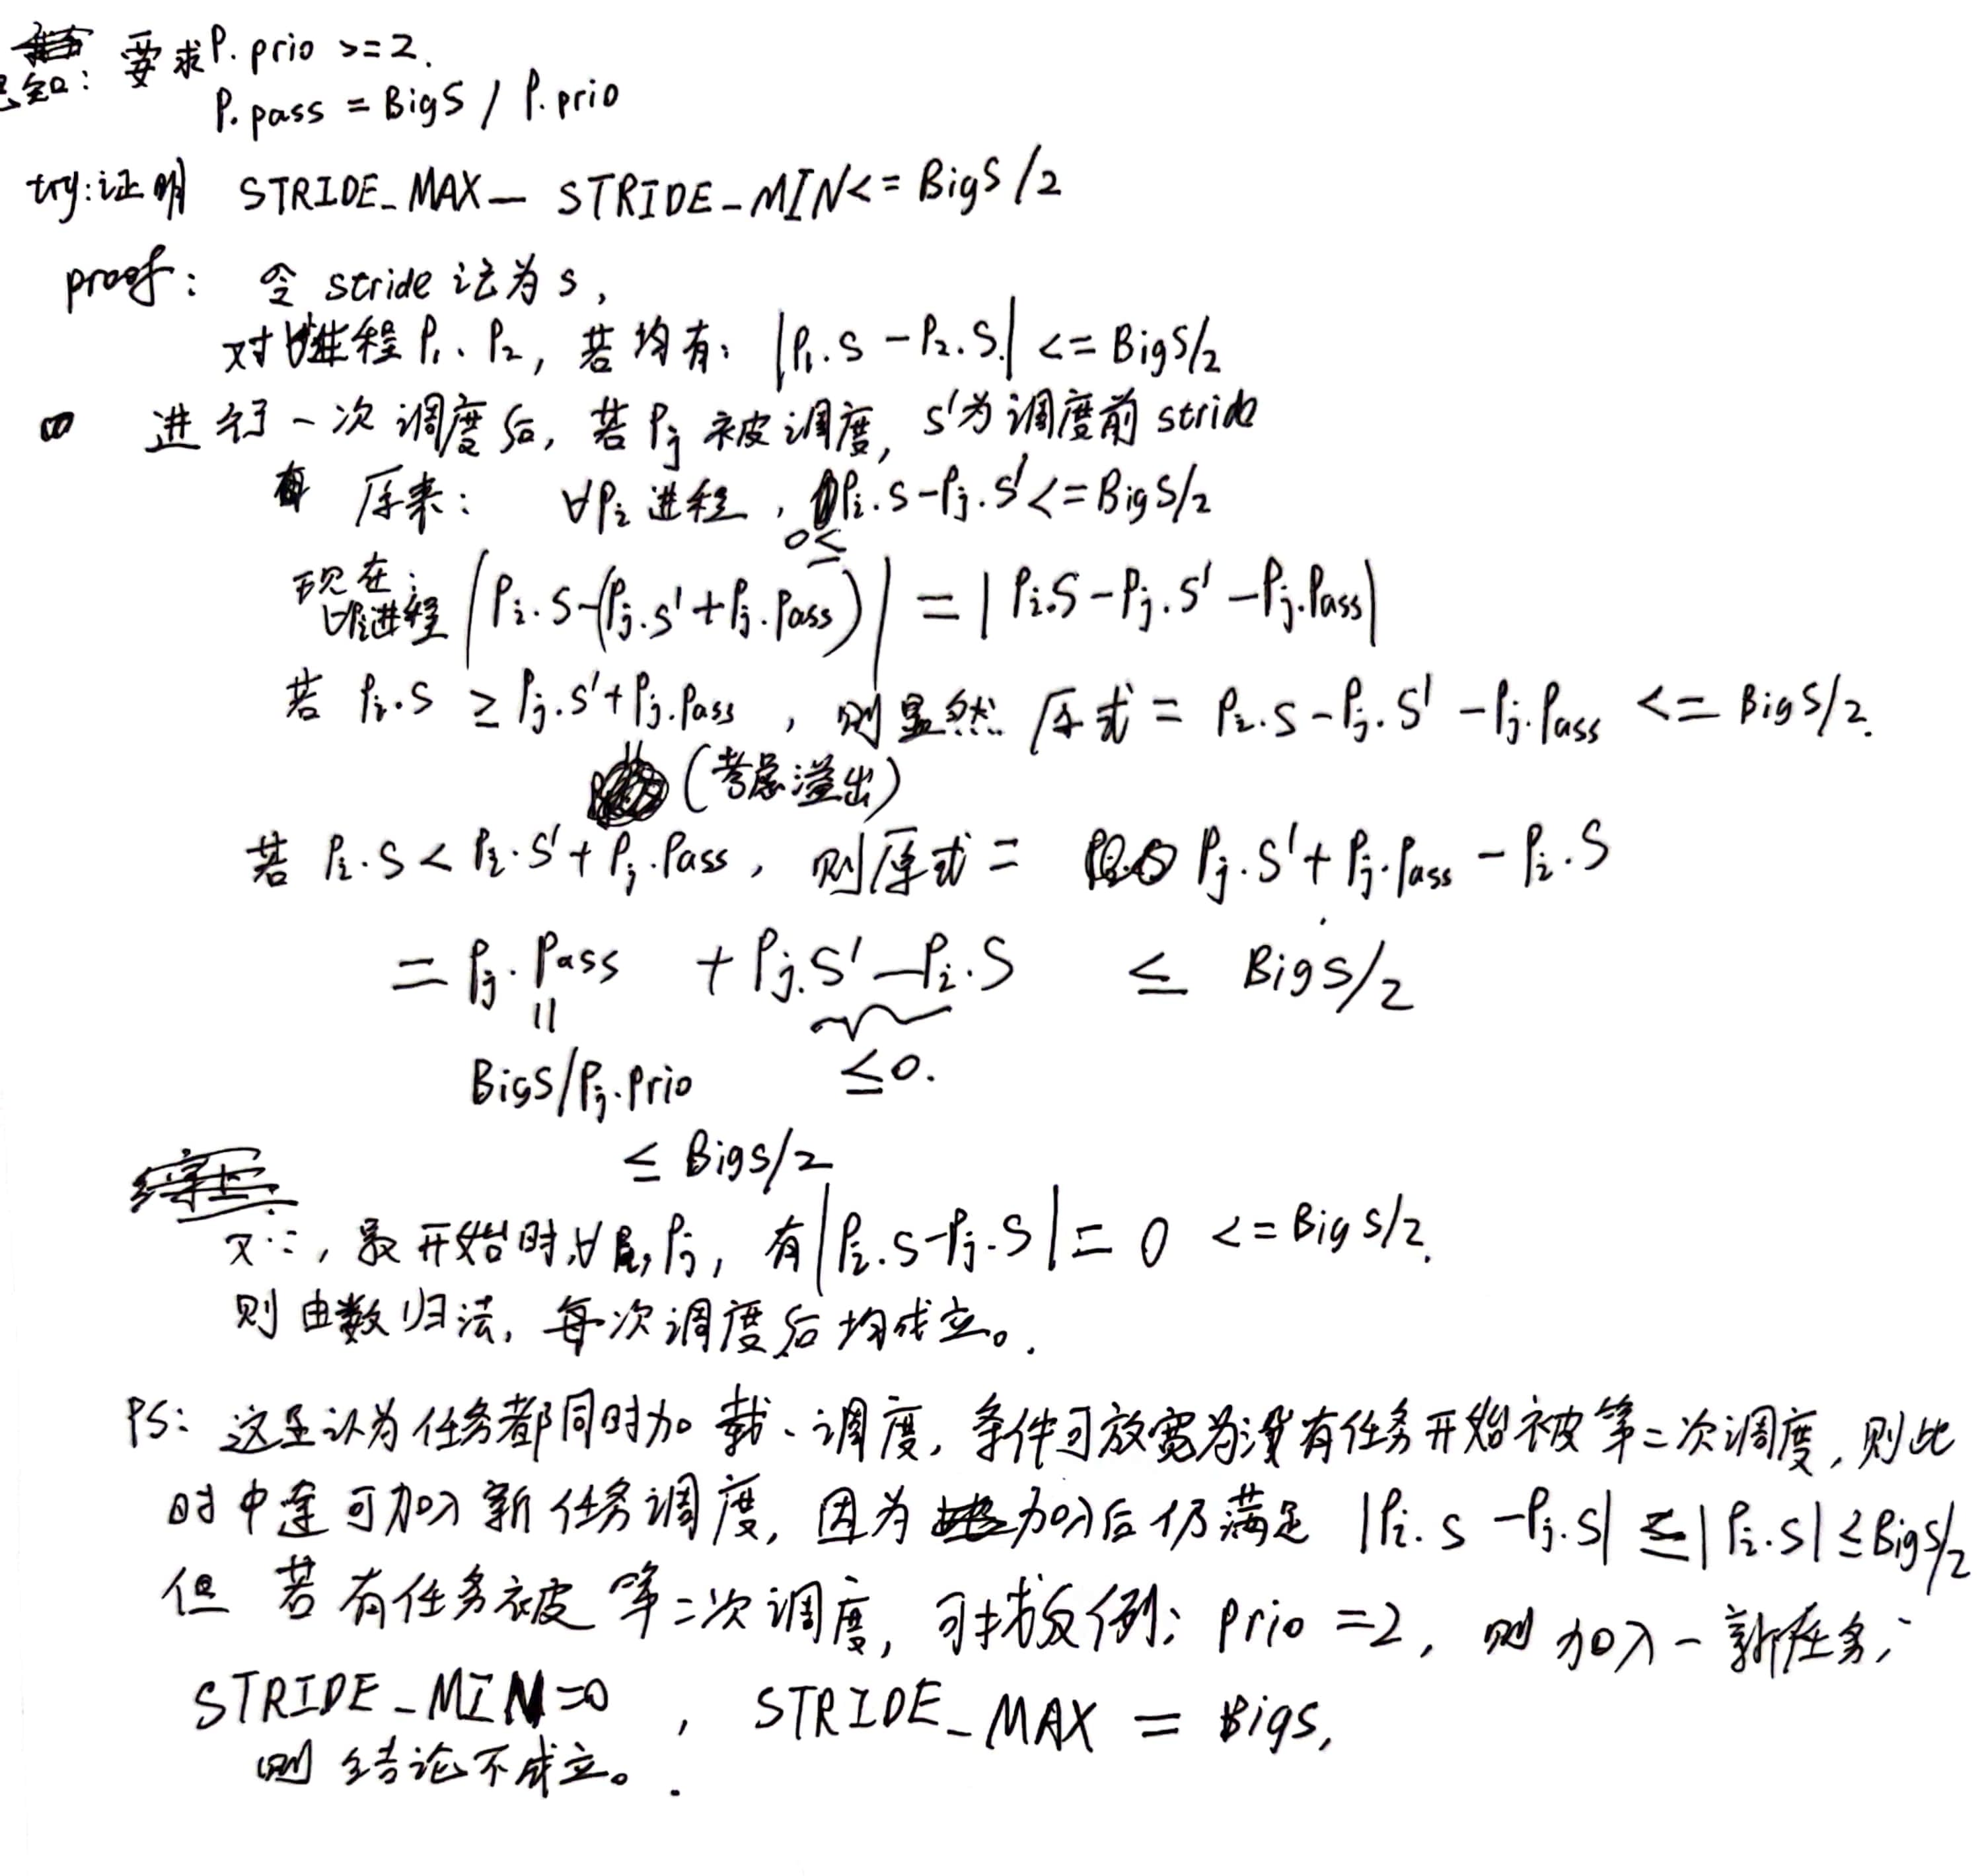 已知: 要求P.prio >=2.
P.pass = BigS / P.prio
try:证明 STRIDE_MAX — STRIDE_MIN<= BigS/2
proof: 令 stride 记为 s,
对∀进程 P₁、P₂, 若均有: |P₁.S - P₂.S| <= BigS/2
进行一次调度后, 若 Pj 被调度, S'为调度前 stride
原来: ∀Pi 进程, 0≤ Pi.S-Pj.S' <= BigS/2
现在: ∀Pi进程 |Pi.S-(Pj.S'+Pj.Pass)| = |Pi.S-Pj.S'-Pj.Pass|
若 Pi.S ≥ Pj.S'+Pj.Pass , 则显然 原式 = Pi.S-Pj.S'-Pj.Pass <= BigS/2.
(考虑溢出)
若 Pi.S < Pi.S'+Pj.Pass, 则原式 = Pj.S'+Pj.Pass-Pi.S
= Pj.Pass + Pj.S'-Pi.S ≤ BigS/2
|| ≤0.
BigS/Pj.Prio
≤ BigS/2
又∵, 最开始时,∀Pi,Pj, 有|Pi.S-Pj.S| = 0 <= BigS/2.
则由数归法, 每次调度后均成立。
PS: 这里认为任务都同时加载、调度, 条件可放宽为没有任务开始被第二次调度, 则此
时中途可加入新任务调度, 因为加入后仍满足 |Pi.S-Pj.S| ≤ |Pi.S| ≤BigS/2
但若有任务被第二次调度, 可找反例: Prio=2, 则加入一新任务,
STRIDE_MIN=0 , STRIDE_MAX = BigS,
则结论不成立。